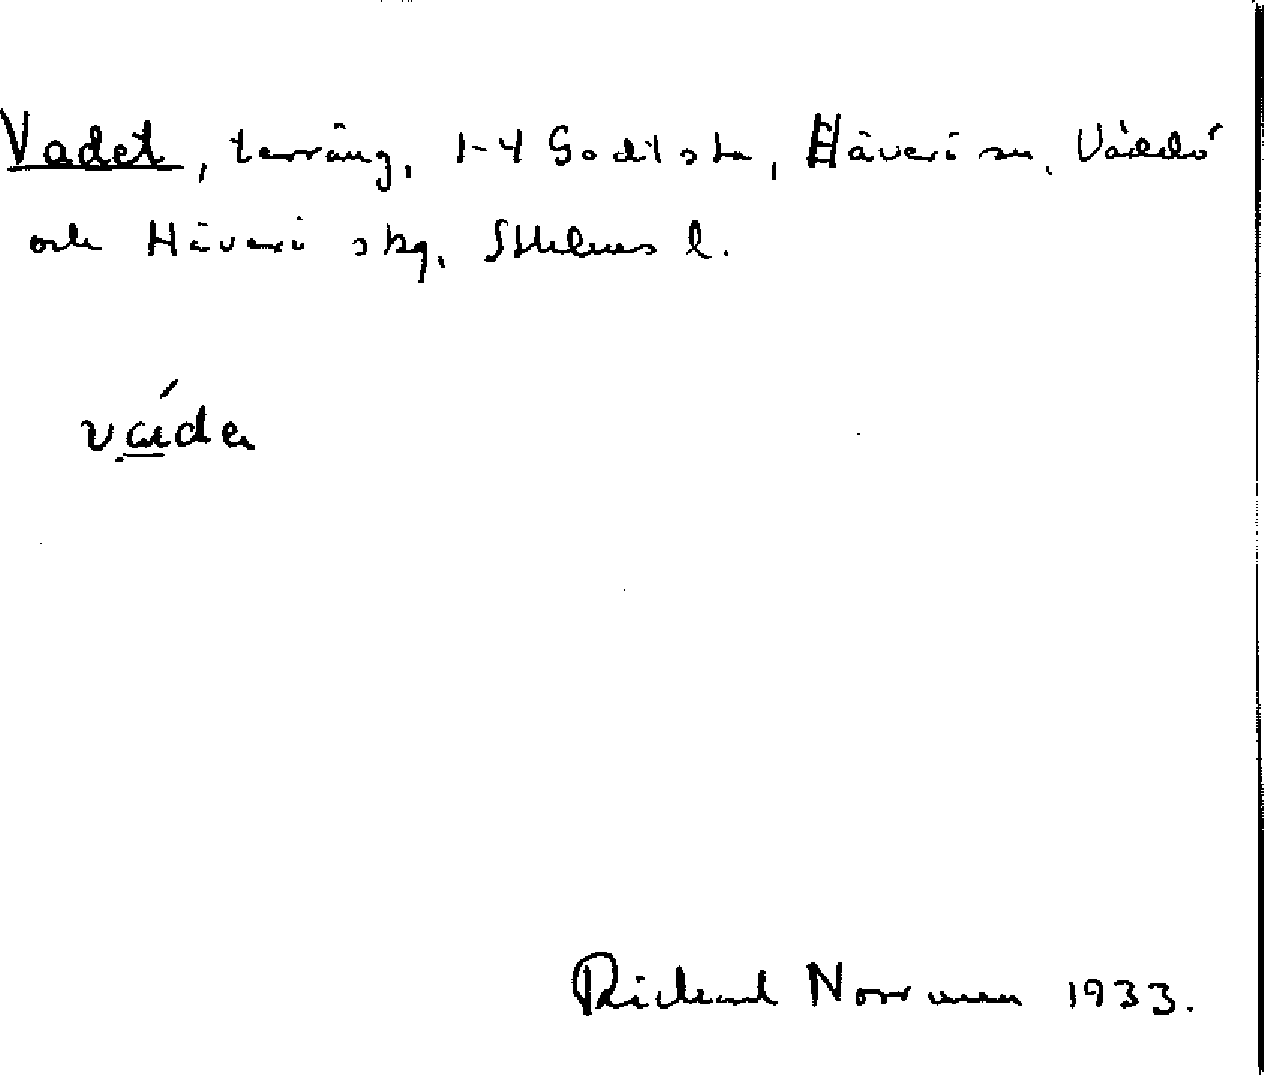 Vadet, terräng, 1-4 Godsta, Häverö sn, Väddö
och Häverö skg, Sthlms l.
väda
Rickard Norrman 1933.